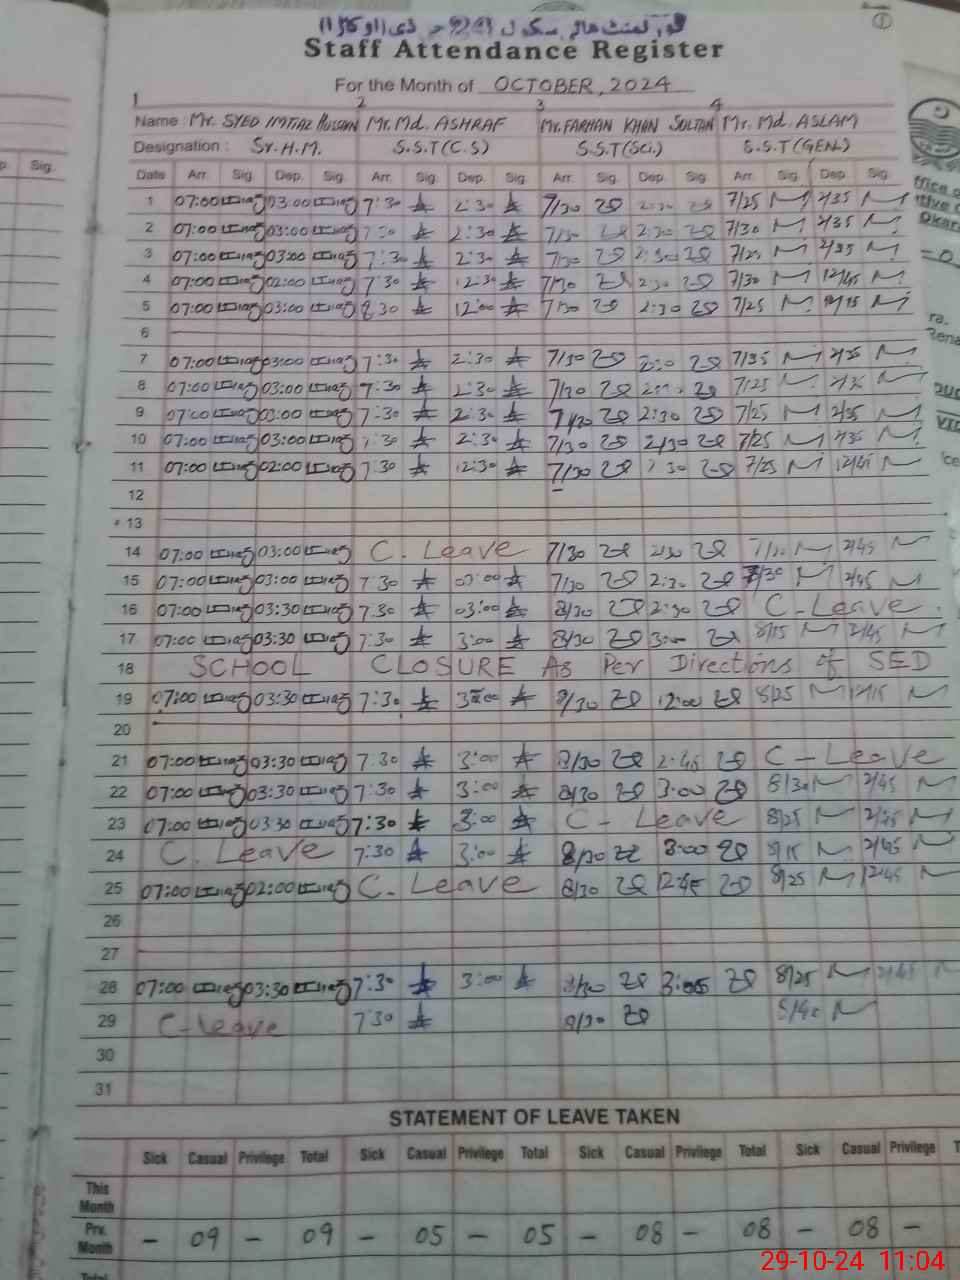 Staff Attendance Register
For the Month of OCTOBER, 2024
1 2 3 4
Name : Mr. SYED IMTIAZ HUSSAIN Mr. Md. ASHRAF Mr. FARHAN KHAN SULTAN Mr. Md. ASLAM
Designation : Sr. H.M. S.S.T (C.S) S.S.T (Sci.) S.S.T (GENL)
Date Arr. Sig. Dep. Sig. Arr. Sig. Dep. Sig. Arr. Sig. Dep. Sig. Arr. Sig. Dep. Sig.
1 07:00 03:00 7:30 2:30 7/30 2:30 7/25 2/35
2 07:00 03:00 7:30 2:30 7/30 2:30 7/30 2/35
3 07:00 03:00 7:30 2:30 7/30 2:30 7/25 2/35
4 07:00 02:00 7:30 12:30 7/30 2:30 7/30 12/45
5 07:00 03:00 8:30 12:00 7/30 2:30 7/25
6
7 07:00 03:00 7:30 2:30 7/30 7/35 2/35
8 07:00 03:00 7:30 2:30 7/30 7/25 2/35
9 07:00 03:00 7:30 2:30 7/30 2:30 7/25 2/35
10 07:00 03:00 7:30 2:30 7/30 2/30 7/25 2/35
11 07:00 02:00 7:30 12:30 7/30 2 30 7/25 12/45
12
13
14 07:00 03:00 C. Leave 7/30 2/30 7/30 2/45
15 07:00 03:00 7:30 03:00 7/30 2:30 7/30 2/45
16 07:00 03:30 7:30 03:00 8/30 2:30 C-Leave
17 07:00 03:30 7:30 3:00 8/30 3:00 8/15 2/45
18 SCHOOL CLOSURE As Per Directions of SED
19 07:00 03:30 7:30 3:00 8/30 12:00 8/25 12/15
20
21 07:00 03:30 7:30 3:00 8/30 2:45 C-Leave
22 07:00 03:30 7:30 3:00 8/30 3:00 8/30 2/45
23 07:00 03:30 7:30 3:00 C- Leave 8/25 2/45
24 C. Leave 7:30 3:00 8/30 3:00 8/15 2/45
25 07:00 02:00 C. Leave 8/30 12:45 8/25 12:45
26
27
28 07:00 03:30 7:30 3:00 8/30 3:05 8/25 2/45
29 C-Leave 7:30 8/30 8/40
30
31
STATEMENT OF LEAVE TAKEN
Sick Casual Privilege Total Sick Casual Privilege Total Sick Casual Privilege Total Sick Casual Privilege
This Month
Prv. Month - 09 - 09 - 05 - 05 - 08 - 08 - 08 -
29-10-24 11:04